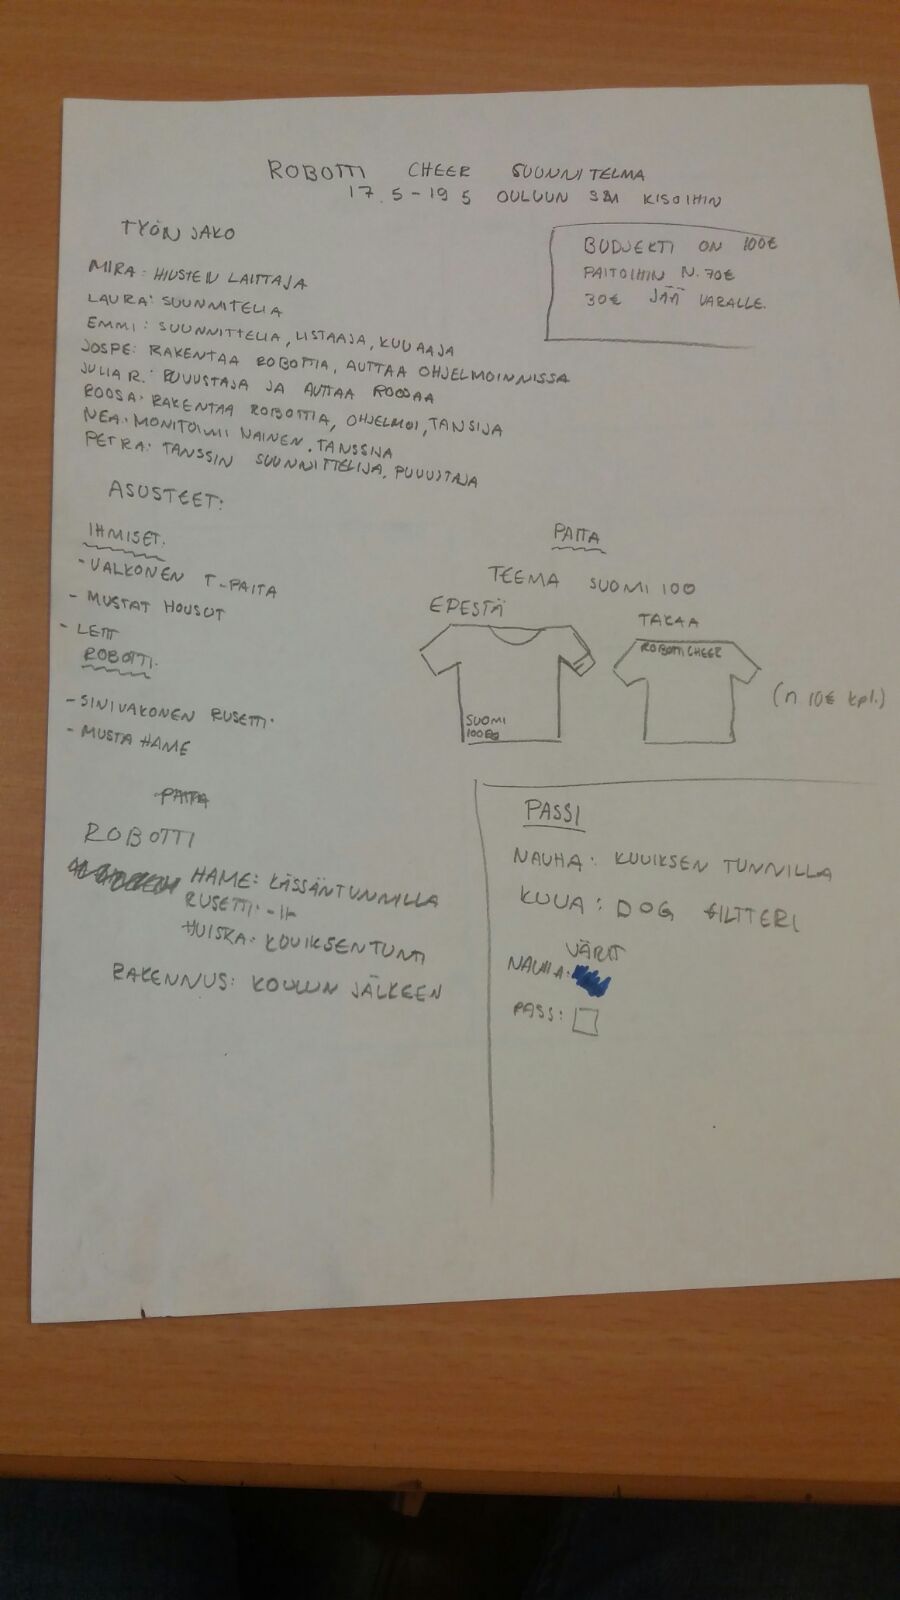 ROBOTTI CHEER SUUNNITELMA
17.5-19 5 OULUUN SM KISOIHIN
TYÖN JAKO
MIRA: HIUSTEN LAITTAJA
LAURA: SUUNNITELIA
EMMI: SUUNNITTELIA, LISTAAJA, KUVAAJA
JOSPE: RAKENTAA ROBOTTIA, AUTTAA OHJELMOINNISSA
JULIA R.: PUVUSTAJA JA AUTTAA ROOSAA
ROOSA: RAKENTAA ROBOTTIA, OHJELMOI, TANSIJA
NEA: MONITOIMI NAINEN, TANSSIJA
PETRA: TANSSIN SUUNNITTELIJA, PUVUSTAJA
BUDJEKTI ON 100€
PAITOIHIN N. 70€
30€ JÄÄ VARALLE.
ASUSTEET:
IHMISET:
- VALKONEN T-PAITA
- MUSTAT HOUSUT
- LETIT
ROBOTTI:
- SINIVAKONEN RUSETTI
- MUSTA HAME
PAITA
TEEMA SUOMI 100
EPESTÄ
TAKAA
SUOMI
100
ROBOTTI CHEER
(n 10€ kpl.)
PAITA
ROBOTTI
HAME: KÄSSÄNTUNNILLA
RUSETTI: -11-
HUISKA: KUVIKSEN TUNTI
RAKENNUS: KOULUN JÄLKEEN
PASSI
NAUHA: KUVIKSEN TUNNILLA
KUVA: DOG FILTTERI
VÄRIT
NAUHA:
PASSI: